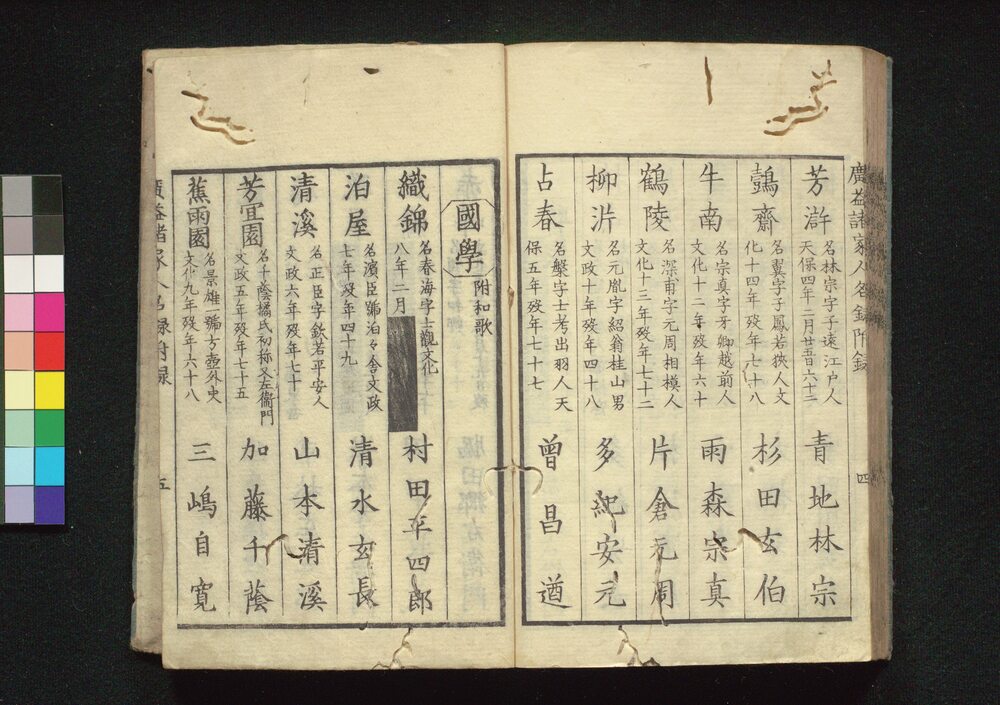 廣益諸家人名録附録 四
芳滸 名林宗字子遠江戸人 天保四年二月廿一日殁年六十二 青地林宗
鷧齋 名翼字子鳳若狹人文化十四年殁年七十八 杉田玄伯
牛南 名宗真字牙卿越前人文化十二年殁年六十 雨森宗真
鶴陵 名深甫字元周相模人文化十三年殁年七十二 片倉元周
柳沜 名元胤字紹翁桂山男文政十年殁年四十八 多紀安元
占春 名槃字士考出羽人天保五年殁年七十七 曾昌遒
國學 附和歌
織錦 名春海字士觀文化八年二月 村田平四郎
泊屋 名濱臣號泊々舎文政七年殁年四十九 清水玄長
清溪 名正臣字欽若平安人文政六年殁年七十 山本清溪
芳宜園 名千蔭橘氏初称又左衞門文政五年殁年七十五 加藤千蔭
蕉雨園 名景雄一號方壺外史文化九年殁年六十八 三嶋自寛
廣益諸家人名録附録 五